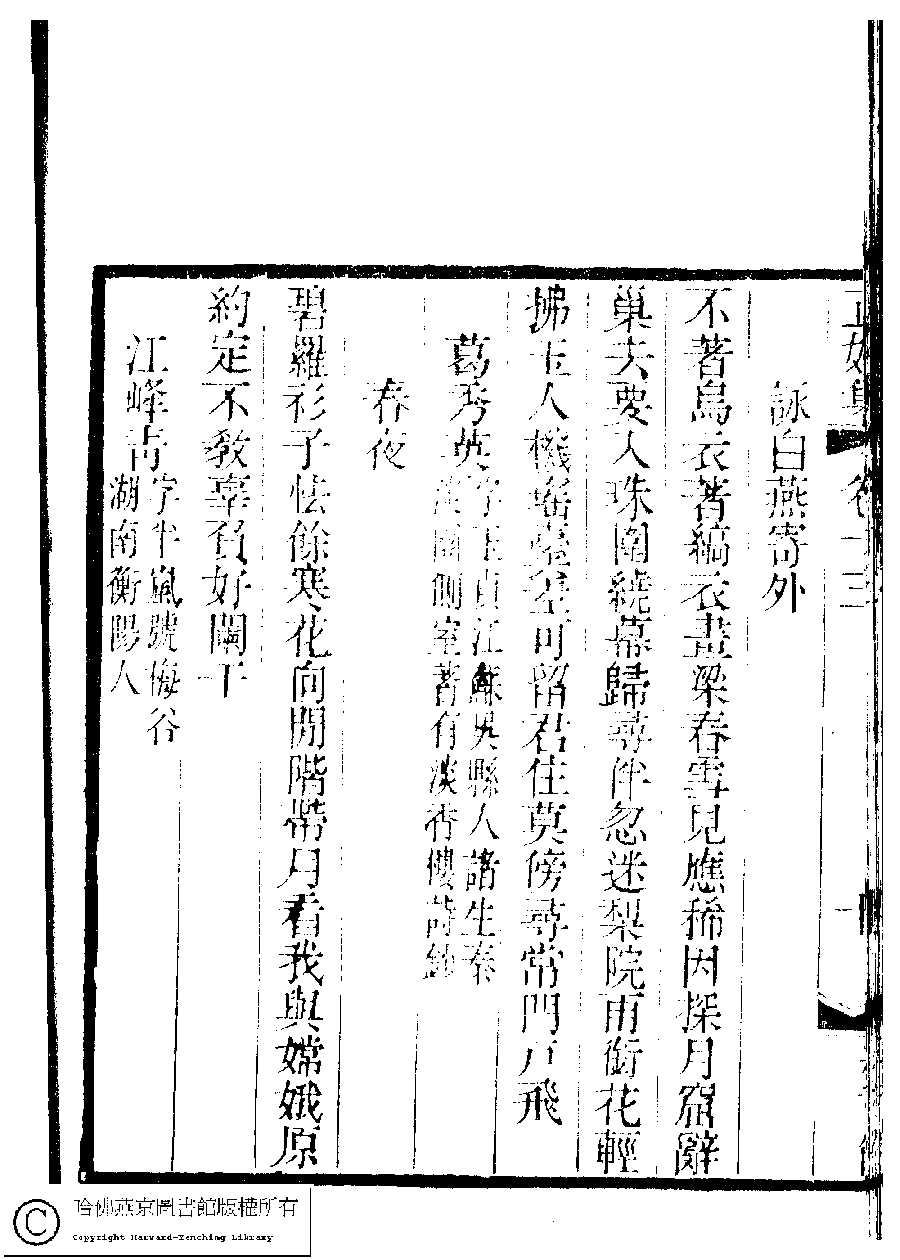 正始集 卷十三
詠白燕寄外
不著烏衣著縞衣畫梁春雪見應稀因探月窟辭
巢去要入珠圍繞幕歸尋伴忽迷梨院雨銜花輕
拂玉人機瑤臺若可留君住莫傍尋常門戸飛
葛秀英字玉貞江蘇吳縣人諸生秦
側室著有淡香樓詩鈔
春夜
碧羅衫子怯餘寒花向閒階帶月看我與嫦娥原
約定不敎辜負好闌干
江峰青字半嵐號梅谷
湖南衡陽人
哈佛燕京圖書館版權所有
Copyright Harvard-Yenching Library